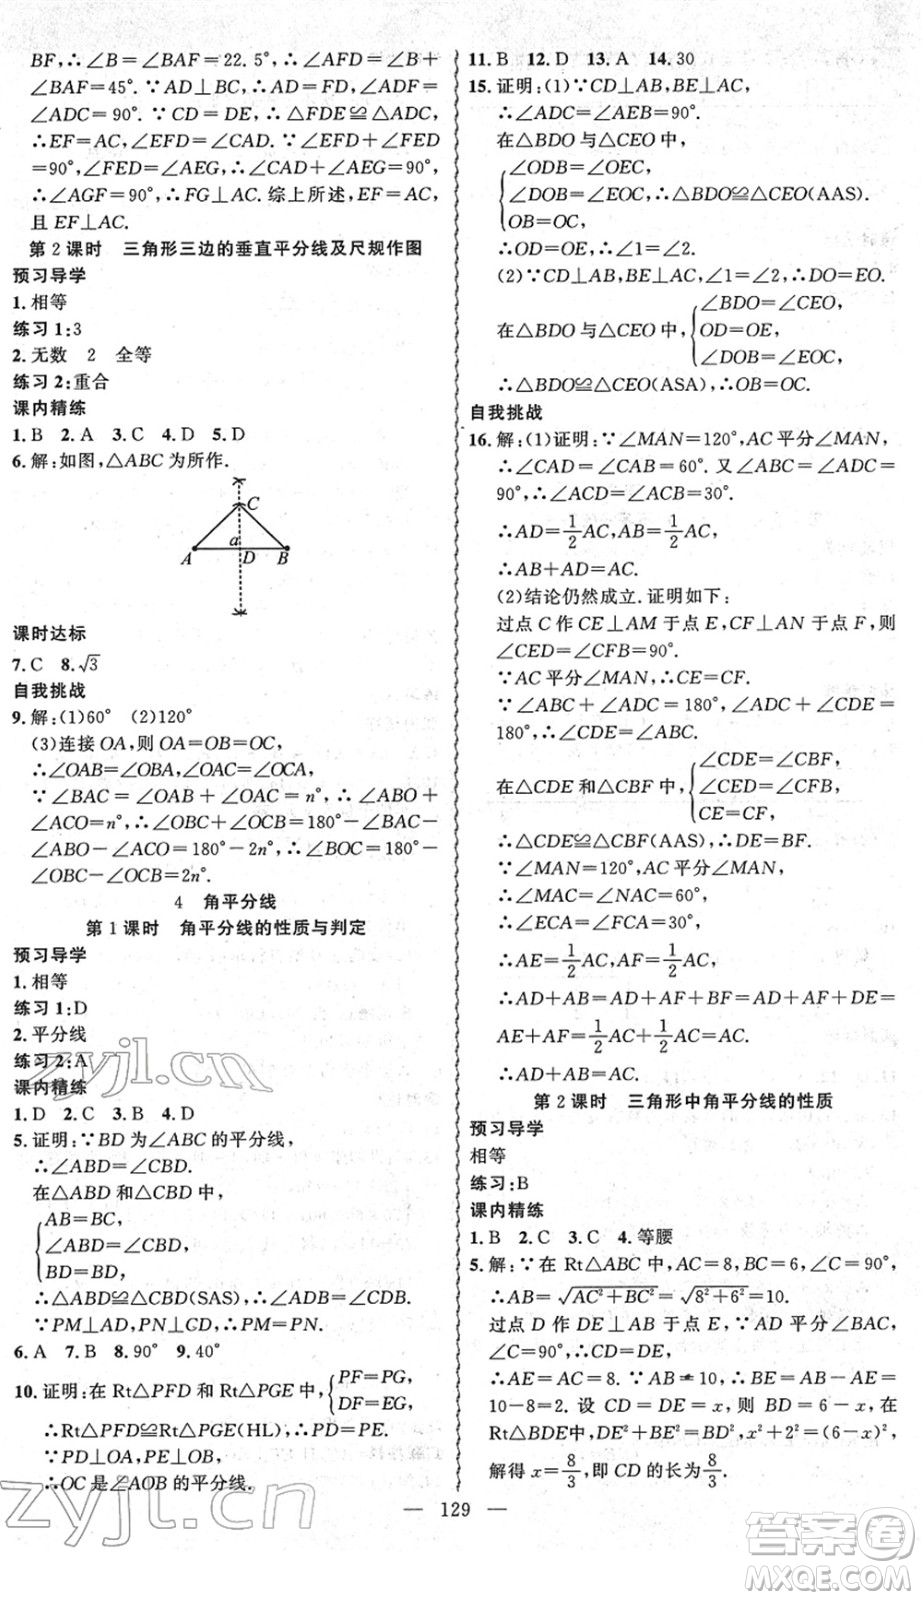 BF,∴∠B=∠BAF=22.5°,∴∠AFD=∠B+
∠BAF=45°.∵AD⊥BC,∴AD=FD,∠ADF=
∠ADC=90°.∵CD=DE,∴△FDE≌△ADC,
∴EF=AC,∠EFD=∠CAD.∵∠EFD+∠FED=
90°,∠FED=∠AEG,∴∠CAD+∠AEG=90°,
∴∠AGF=90°,∴FG⊥AC.综上所述,EF=AC,
且 EF⊥AC.
第2课时 三角形三边的垂直平分线及尺规作图
预习导学
1.相等
练习1:3
2.无数 2 全等
练习2:重合
课内精练
1.B 2.A 3.C 4.D 5.D
6.解:如图,△ABC为所作.
C
a
A D B
课时达标
7.C 8.√3
自我挑战
9.解:(1)60° (2)120°
(3)连接OA,则OA=OB=OC,
∴∠OAB=∠OBA,∠OAC=∠OCA.
∵∠BAC=∠OAB+∠OAC=n°,∴∠ABO+
∠ACO=n°,∴∠OBC+∠OCB=180°-∠BAC-
∠ABO-∠ACO=180°-2n°,∴∠BOC=180°-
∠OBC-∠OCB=2n°.
4 角平分线
第1课时 角平分线的性质与判定
预习导学
1.相等
练习1:D
2.平分线
练习2:A
课内精练
1.D 2.C 3.B 4.D
5.证明:∵BD为∠ABC的平分线,
∴∠ABD=∠CBD.
在△ABD和△CBD中,
AB=BC,
∠ABD=∠CBD,
BD=BD,
∴△ABD≌△CBD(SAS),∴∠ADB=∠CDB.
∵PM⊥AD,PN⊥CD,∴PM=PN.
6.A 7.B 8.90° 9.40°
10.证明:在Rt△PFD和Rt△PGE中,{PF=PG,
DF=EG,
∴Rt△PFD≌Rt△PGE(HL),∴PD=PE.
∵PD⊥OA,PE⊥OB,
∴OC是∠AOB的平分线.
11.B 12.D 13.A 14.30
15.证明:(1)∵CD⊥AB,BE⊥AC,
∴∠ADC=∠AEB=90°.
在△BDO与△CEO中,
∠ODB=∠OEC,
∠DOB=∠EOC,∴△BDO≌△CEO(AAS).
OB=OC,
∴OD=OE,∴∠1=∠2.
(2)∵CD⊥AB,BE⊥AC,∠1=∠2,∴DO=EO.
∠BDO=∠CEO,
在△BDO与△CEO中,{OD=OE,
∠DOB=∠EOC,
∴△BDO≌△CEO(ASA),∴OB=OC.
自我挑战
16.解:(1)证明:∵∠MAN=120°,AC平分∠MAN,
∴∠CAD=∠CAB=60°.又∠ABC=∠ADC=
90°,∴∠ACD=∠ACB=30°.
∴AD=1/2AC,AB=1/2AC,
∴AB+AD=AC.
(2)结论仍然成立.证明如下:
过点C作CE⊥AM于点E,CF⊥AN于点F,则
∠CED=∠CFB=90°.
∵AC平分∠MAN,∴CE=CF.
∵∠ABC+∠ADC=180°,∠ADC+∠CDE=
180°,∴∠CDE=∠ABC.
∠CDE=∠CBF,
在△CDE和△CBF中,{∠CED=∠CFB,
CE=CF,
∴△CDE≌△CBF(AAS),∴DE=BF.
∵∠MAN=120°,AC平分∠MAN,
∴∠MAC=∠NAC=60°,
∴∠ECA=∠FCA=30°,
∴AE=1/2AC,AF=1/2AC,
∴AD+AB=AD+AF+BF=AD+AF+DE=
AE+AF=1/2AC+1/2AC=AC,
∴AD+AB=AC.
第2课时 三角形中角平分线的性质
预习导学
相等
练习:B
课内精练
1.B 2.C 3.C 4.等腰
5.解:∵在Rt△ABC中,AC=8,BC=6,∠C=90°,
∴AB=√(AC²+BC²)=√(8²+6²)=10.
过点D作DE⊥AB于点E.∵AD平分∠BAC,
∠C=90°,∴CD=DE.
∴AE=AC=8.∵AB=10,∴BE=AB-AE=
10-8=2.设CD=DE=x,则BD=6-x,在
Rt△BDE中,DE²+BE²=BD²,x²+2²=(6-x)²,
解得x=8/3,即CD的长为8/3.
— 129 —
zyjl.cn
zyjl.cn
答案圈
MXQE.COM